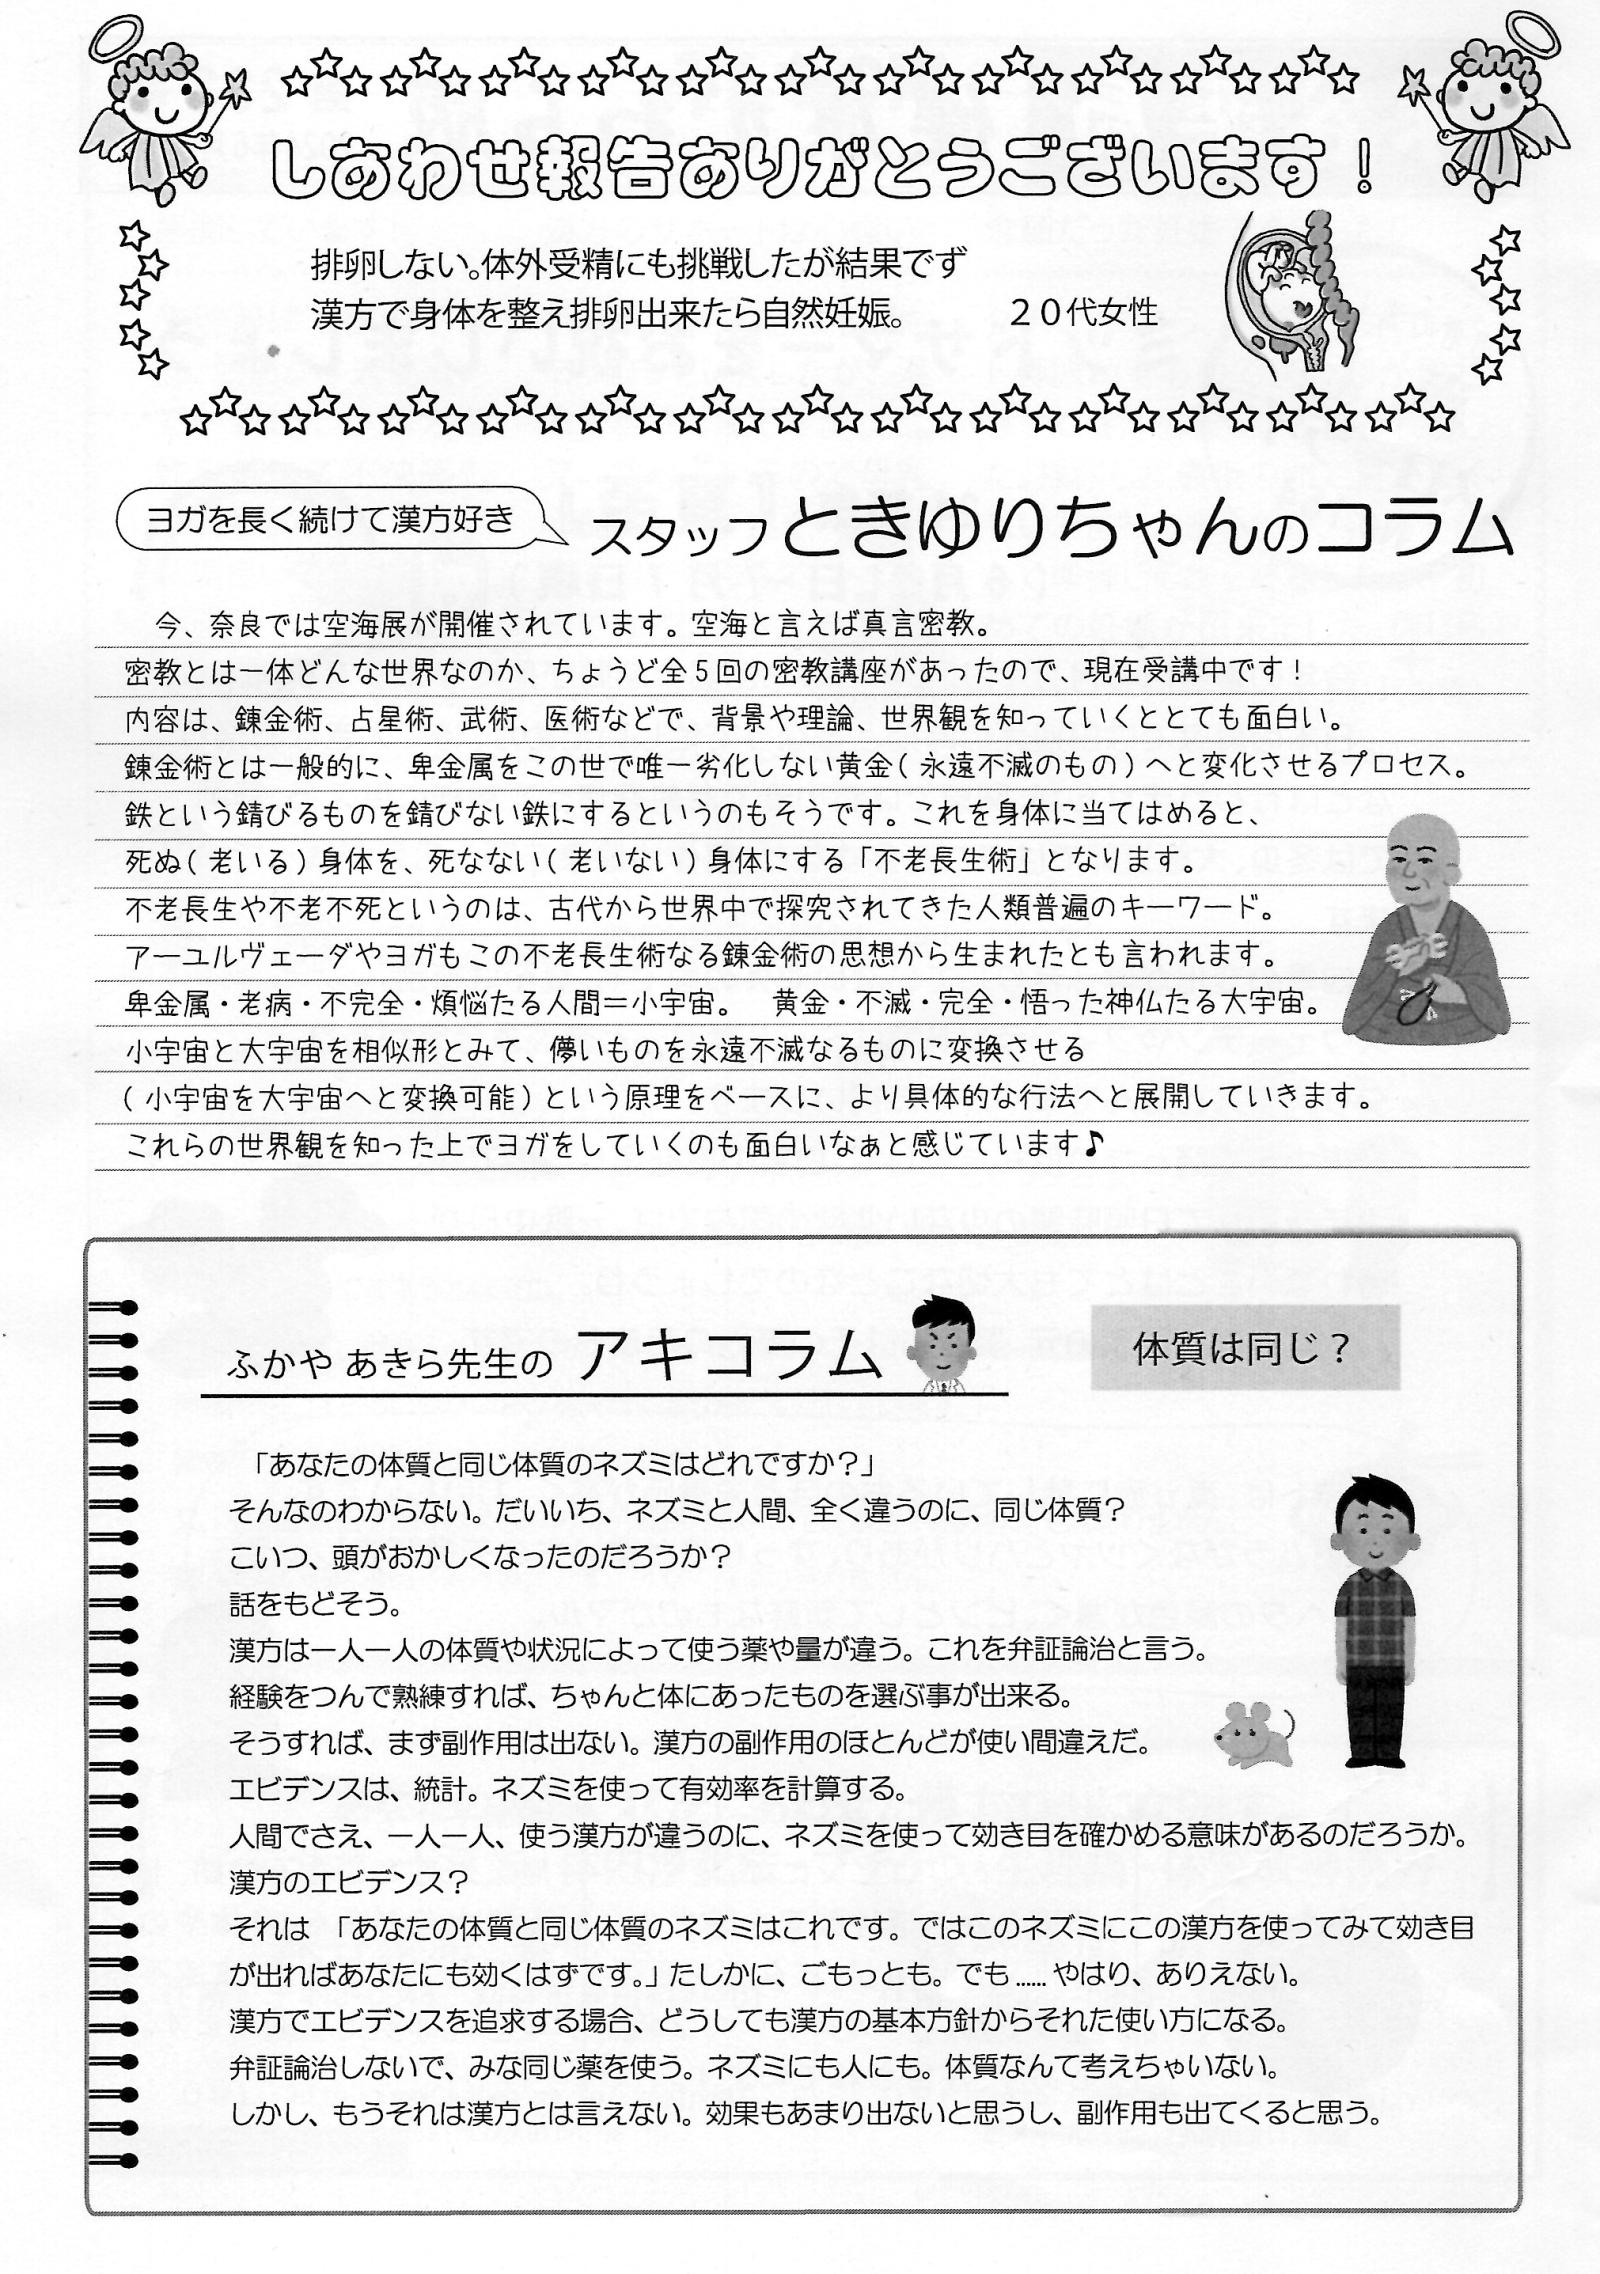 しあわせ報告ありがとうございます！
排卵しない。体外受精にも挑戦したが結果でず
漢方で身体を整え排卵出来たら自然妊娠。　２０代女性
ヨガを長く続けて漢方好き
スタッフときゆりちゃんのコラム
今、奈良では空海展が開催されています。空海と言えば真言密教。
密教とは一体どんな世界なのか、ちょうど全５回の密教講座があったので、現在受講中です！
内容は、錬金術、占星術、武術、医術などで、背景や理論、世界観を知っていくととても面白い。
錬金術とは一般的に、卑金属をこの世で唯一劣化しない黄金（永遠不滅のもの）へと変化させるプロセス。
鉄という錆びるものを錆びない鉄にするというのもそうです。これを身体に当てはめると、
死ぬ（老いる）身体を、死なない（老いない）身体にする「不老長生術」となります。
不老長生や不老不死というのは、古代から世界中で探究されてきた人類普遍のキーワード。
アーユルヴェーダやヨガもこの不老長生術なる錬金術の思想から生まれたとも言われます。
卑金属・老病・不完全・煩悩たる人間＝小宇宙。　黄金・不滅・完全・悟った神仏たる大宇宙。
小宇宙と大宇宙を相似形とみて、儚いものを永遠不滅なるものに変換させる
（小宇宙を大宇宙へと変換可能）という原理をベースに、より具体的な行法へと展開していきます。
これらの世界観を知った上でヨガをしていくのも面白いなぁと感じています♪
ふかや あきら先生の アキコラム
体質は同じ？
「あなたの体質と同じ体質のネズミはどれですか？」
そんなのわからない。だいいち、ネズミと人間、全く違うのに、同じ体質？
こいつ、頭がおかしくなったのだろうか？
話をもどそう。
漢方は一人一人の体質や状況によって使う薬や量が違う。これを弁証論治と言う。
経験をつんで熟練すれば、ちゃんと体にあったものを選ぶ事が出来る。
そうすれば、まず副作用は出ない。漢方の副作用のほとんどが使い間違えだ。
エビデンスは、統計。ネズミを使って有効率を計算する。
人間でさえ、一人一人、使う漢方が違うのに、ネズミを使って効き目を確かめる意味があるのだろうか。
漢方のエビデンス？
それは　「あなたの体質と同じ体質のネズミはこれです。ではこのネズミにこの漢方を使ってみて効き目
が出ればあなたにも効くはずです。」たしかに、ごもっとも。でも……やはり、ありえない。
漢方でエビデンスを追求する場合、どうしても漢方の基本方針からそれた使い方になる。
弁証論治しないで、みな同じ薬を使う。ネズミにも人にも。体質なんて考えちゃいない。
しかし、もうそれは漢方とは言えない。効果もあまり出ないと思うし、副作用も出てくると思う。